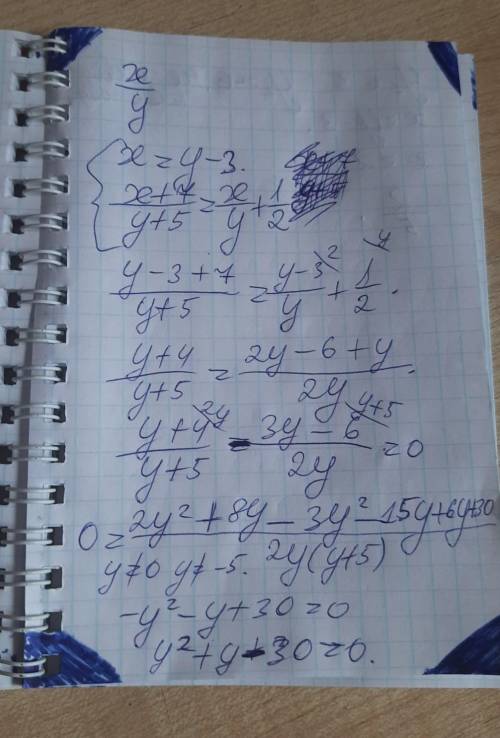 x/y
{ x = y - 3.
(x+7)/(y+5) = x/y + 1/2
(y-3+7)/(y+5) = (y-3)/y \2 + 1/2 \y.
(y+4)/(y+5) = (2y-6+y)/2y.
(y+4)/(y+5) \2y - (3y-6)/2y \y+5 = 0
0 = (2y²+8y-3y²-15y+6y+30)/2y(y+5)
y≠0 y≠-5.
-y²-y+30=0
y²+y-30=0.